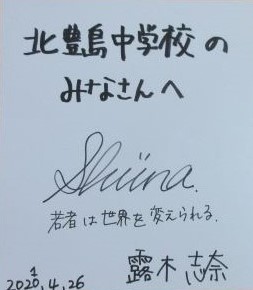 北豊島中学校の
みなさんへ
Shiina.
若者は世界を変えられる.
露木 志奈
2021.4.26